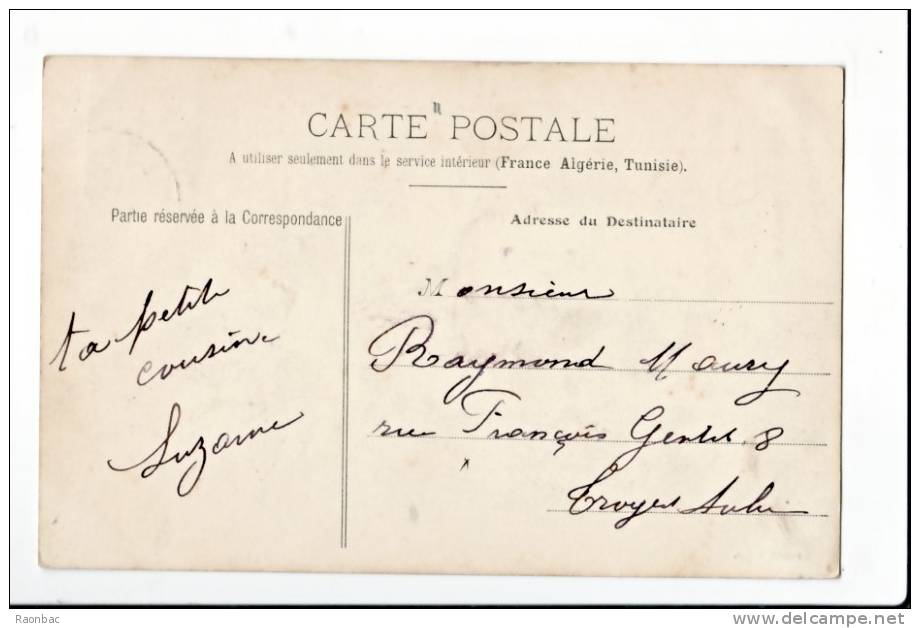 CARTE POSTALE
A utiliser seulement dans le service intérieur (France Algérie, Tunisie).
Partie réservée à la Correspondance
Adresse du Destinataire
ta petite
cousine
Suzanne
Monsieur
Raymond Maury
rue François Gentil 8
Troyes Aube
Raonbac
www.delcampe.net